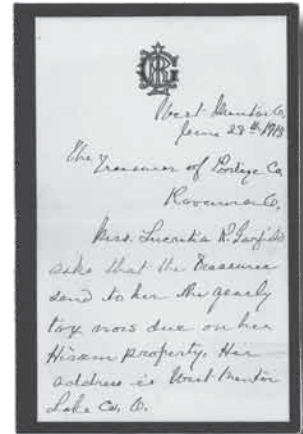 West Mentor O.
June 28th 1913
The
Treasurer of Portage Co.
Ravenna O.
Mrs. Lucretia R. Garfield
asks that the Treasurer
send to her the yearly
tax now due on her
Hiram property. Her
address is West Mentor
Lake Co. O.